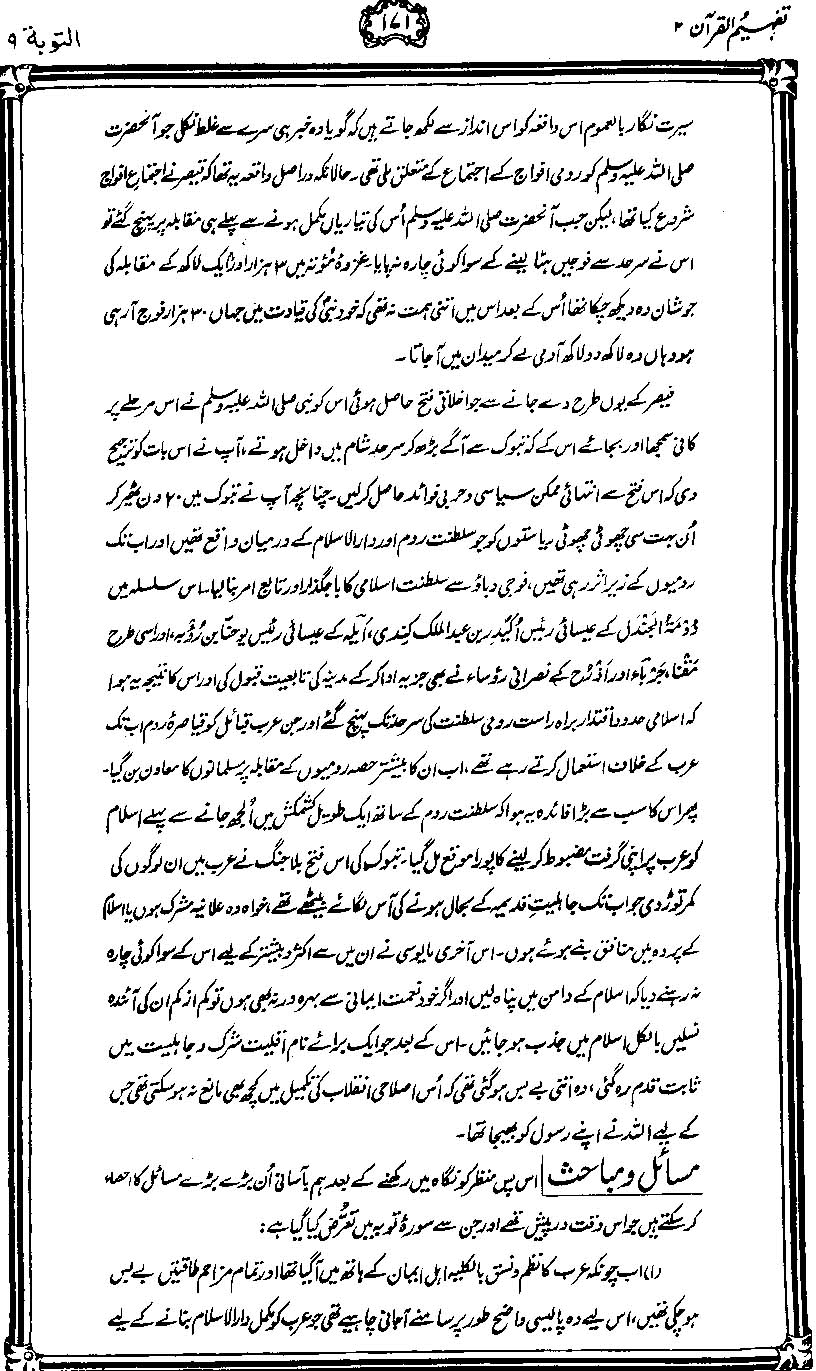 تفہیم القرآن ۲
۱۷۱
التوبۃ ۹
سیرت نگار بالعموم اس واقعہ کو اس انداز سے لکھ جاتے ہیں کہ گویا وہ خبر ہی سرے سے غلط نکلی جو آنحضرت
صلی اللہ علیہ وسلم کو رومی افواج کے اجتماع کے متعلق ملی تھی۔ حالانکہ دراصل واقعہ یہ تھا کہ قیصر نے اجتماع افواج
شروع کیا تھا، لیکن جب آنحضرت صلی اللہ علیہ وسلم اُس کی تیاریاں مکمل ہونے سے پہلے ہی مقابلہ پر پہنچ گئے تو
اس نے سرحد سے فوجیں ہٹا لینے کے سوا کوئی چارہ نہ پایا۔ غزوۂ مُؤتہ میں ۳ ہزار اور ایک لاکھ کے مقابلہ کی
جو شان وہ دیکھ چکا تھا اُس کے بعد اس میں اتنی ہمت نہ تھی کہ خود نبیؐ کی قیادت میں جہاں ۳۰ ہزار فوج آ رہی
ہو وہاں وہ لاکھ دو لاکھ آدمی لے کر میدان میں آ جاتا۔
قیصر کے یوں طرح دے جانے سے جو اخلاقی فتح حاصل ہوئی اس کو نبی صلی اللہ علیہ وسلم نے اس مرحلے پر
کافی سمجھا اور بجائے اس کے کہ تبوک سے آگے بڑھ کر سرحد شام میں داخل ہوتے، آپ نے اس بات کو ترجیح
دی کہ اس فتح سے انتہائی ممکن سیاسی و حربی فوائد حاصل کرلیں۔ چنانچہ آپ نے تبوک میں ۲۰ دن ٹھیر کر
اُن بہت سی چھوٹی چھوٹی ریاستوں کو جو سلطنت روم اور دارالاسلام کے درمیان واقع تھیں اور اب تک
رومیوں کے زیر اثر رہی تھیں، فوجی دباؤ سے سلطنت اسلامی کا باجگذار اور تابع امر بنا لیا۔ اس سلسلہ میں
دُومَۃُ الجَندَل کے عیسائی رئیس اُکَیدِر بن عبدالملک کِندی، اَیلَہ کے عیسائی رئیس یوحنّا بن رُؤبہ، اور اسی طرح
مَقنا، جَرباء اور اَذرُح کے نصرانی رؤساء نے بھی جزیہ ادا کر کے مدینہ کی تابعیت قبول کی اور اس کا نتیجہ یہ ہوا
کہ اسلامی حدود اقتدار براہ راست رومی سلطنت کی سرحد تک پہنچ گئے اور جن عرب قبائل کو قیاصرۂ روم اب تک
عرب کے خلاف استعمال کرتے رہے تھے، اب ان کا بیشتر حصہ رومیوں کے مقابلہ پر مسلمانوں کا معاون بن گیا۔
پھر اس کا سب سے بڑا فائدہ یہ ہوا کہ سلطنت روم کے ساتھ ایک طویل کشمکش میں اُلجھ جانے سے پہلے اسلام
کو عرب پر اپنی گرفت مضبوط کر لینے کا پورا موقع مل گیا۔ تبوک کی اس فتح بلا جنگ نے عرب میں ان لوگوں کی
کمر توڑ دی جو اب تک جاہلیتِ قدیمہ کے بحال ہونے کی آس لگائے بیٹھے تھے، خواہ وہ علانیہ مشرک ہوں یا اسلام
کے پردہ میں منافق بنے ہوئے ہوں۔ اس آخری مایوسی نے ان میں سے اکثر و بیشتر کے لیے اس کے سوا کوئی چارہ
نہ رہنے دیا کہ اسلام کے دامن میں پناہ لیں اور اگر خود نعمت ایمانی سے بہرہ ور نہ بھی ہوں تو کم از کم ان کی آئندہ
نسلیں بالکل اسلام میں جذب ہو جائیں۔ اس کے بعد جو ایک برائے نام اقلیت شرک و جاہلیت میں
ثابت قدم رہ گئی، وہ اتنی بے بس ہو گئی تھی کہ اُس اصلاحی انقلاب کی تکمیل میں کچھ بھی مانع نہ ہو سکتی تھی جس
کے لیے اللہ نے اپنے رسول کو بھیجا تھا۔
مسائل و مباحث اس پس منظر کو نگاہ میں رکھنے کے بعد ہم بآسانی اُن بڑے بڑے مسائل کا احصاء
کر سکتے ہیں جو اس وقت درپیش تھے اور جن سے سورۂ توبہ میں تعرُّض کیا گیا ہے:
(۱) اب چونکہ عرب کا نظم و نسق بالکلیہ اہل ایمان کے ہاتھ میں آ گیا تھا اور تمام مزاحم طاقتیں بے بس
ہو چکی تھیں، اس لیے وہ پالیسی واضح طور پر سامنے آ جانی چاہیے تھی جو عرب کو مکمل دارالاسلام بنانے کے لیے